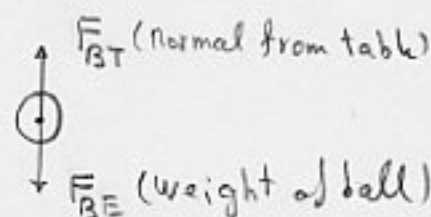 F_BT (normal from table)
F_BE (weight of ball)